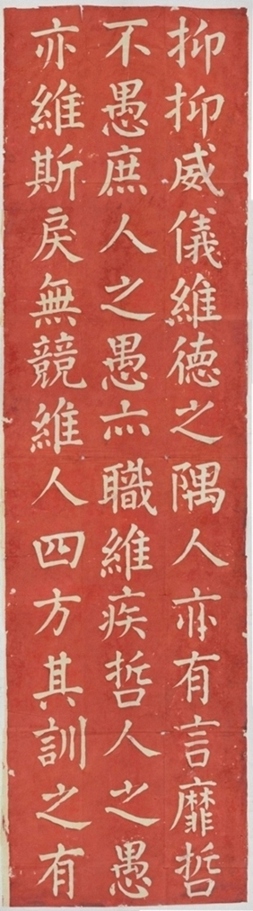 抑抑威儀維德之隅人亦有言靡哲
不愚庶人之愚亦職維疾哲人之愚
亦維斯戾無競維人四方其訓之有